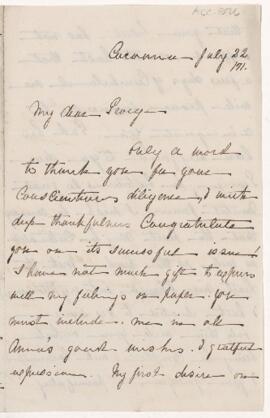 Cacouna July 22
/91.
My dear Percy -
Only a word
to thank you for your
Conscientious diligence, & with
deep thankfulness Congratulate
you on its successful issue!
I have not much gift to express
well my feelings on paper. You
must include me in all
Anna's good wishes & grateful
expression. My first desire on